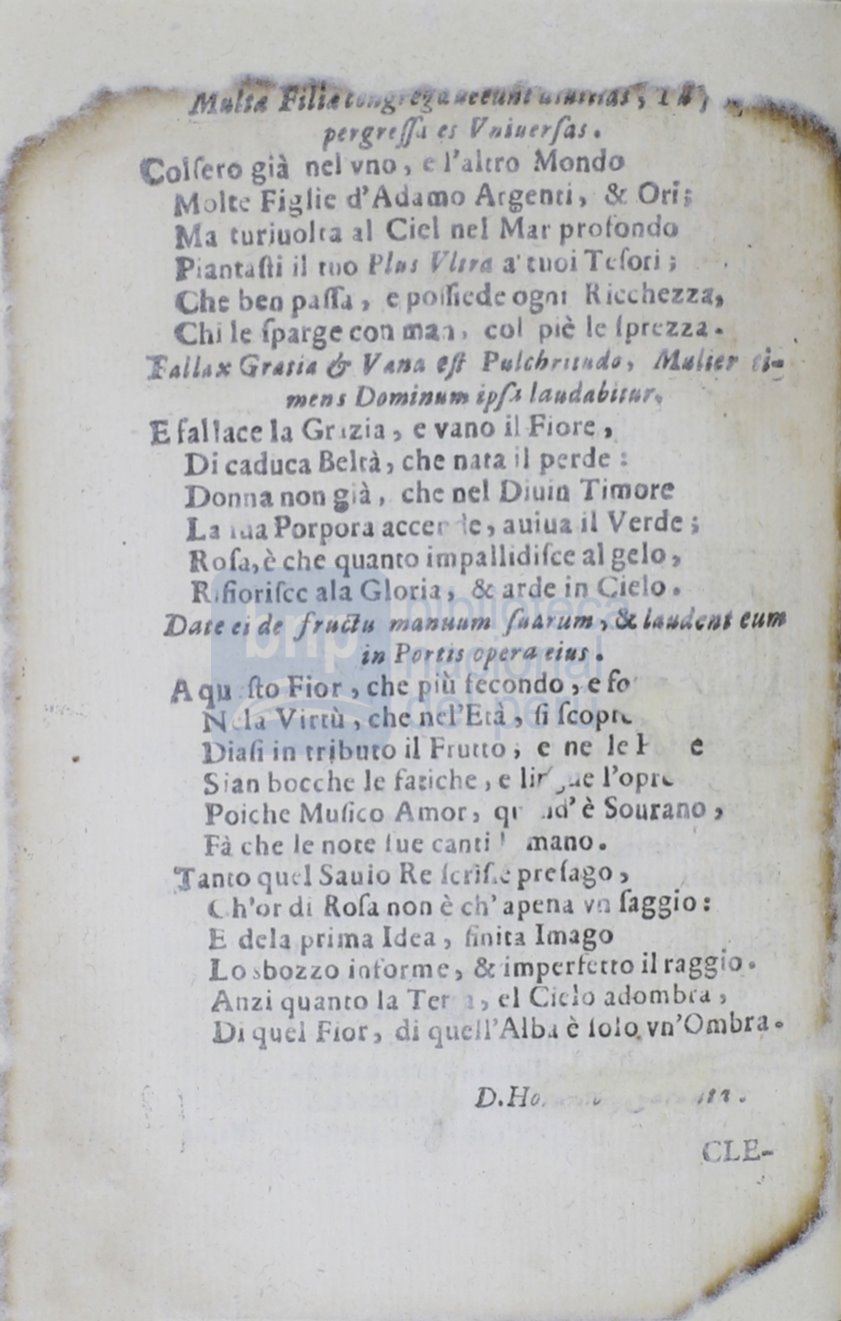 Multæ Filiæ congregauerunt diuitias,
pergreſſa es Vniuerſas.
Colſero già nel vno, e l'altro Mondo
Molte Figlie d'Adamo Argenti, & Ori;
Ma tu riuolta al Ciel nel Mar profondo
Piantaſti il tuo Plus Vltra a' tuoi Teſori;
Che ben paſſa, e poſſiede ogni Ricchezza,
Chi le ſparge con man, col piè le ſprezza.
Fallax Gratia & Vana eſt Pulchritudo, Mulier ti-
mens Dominum ipſa laudabitur.
E fallace la Grazia, e vano il Fiore,
Di caduca Beltà, che nata il perde:
Donna non già, che nel Diuin Timore
La ſua Porpora accende, auiua il Verde;
Roſa, è che quanto impallidiſce al gelo,
Rifioriſce ala Gloria, & arde in Cielo.
Date ei de fructu manuum ſuarum, & laudent eum
in Portis opera eius.
A queſto Fior, che più fecondo, e
Nela Virtù, che nel'Età, ſi ſcopre
Diaſi in tributo il Frutto, e ne le
Sian bocche le fatiche, e lingue l'opre
Poiche Muſico Amor, quand' è Sourano,
Fà che le note ſue canti mano.
Tanto quel Sauio Re ſcriſſe preſago,
Ch'or di Roſa non è ch' apena vn ſaggio:
E dela prima Idea, finita Imago
Lo sbozzo informe, & imperfetto il raggio.
Anzi quanto la Terra, el Cielo adombra,
Di quel Fior, di quell'Alba è ſolo vn'Ombra.
D.
CLE-
bnp biblioteca nacional del perú